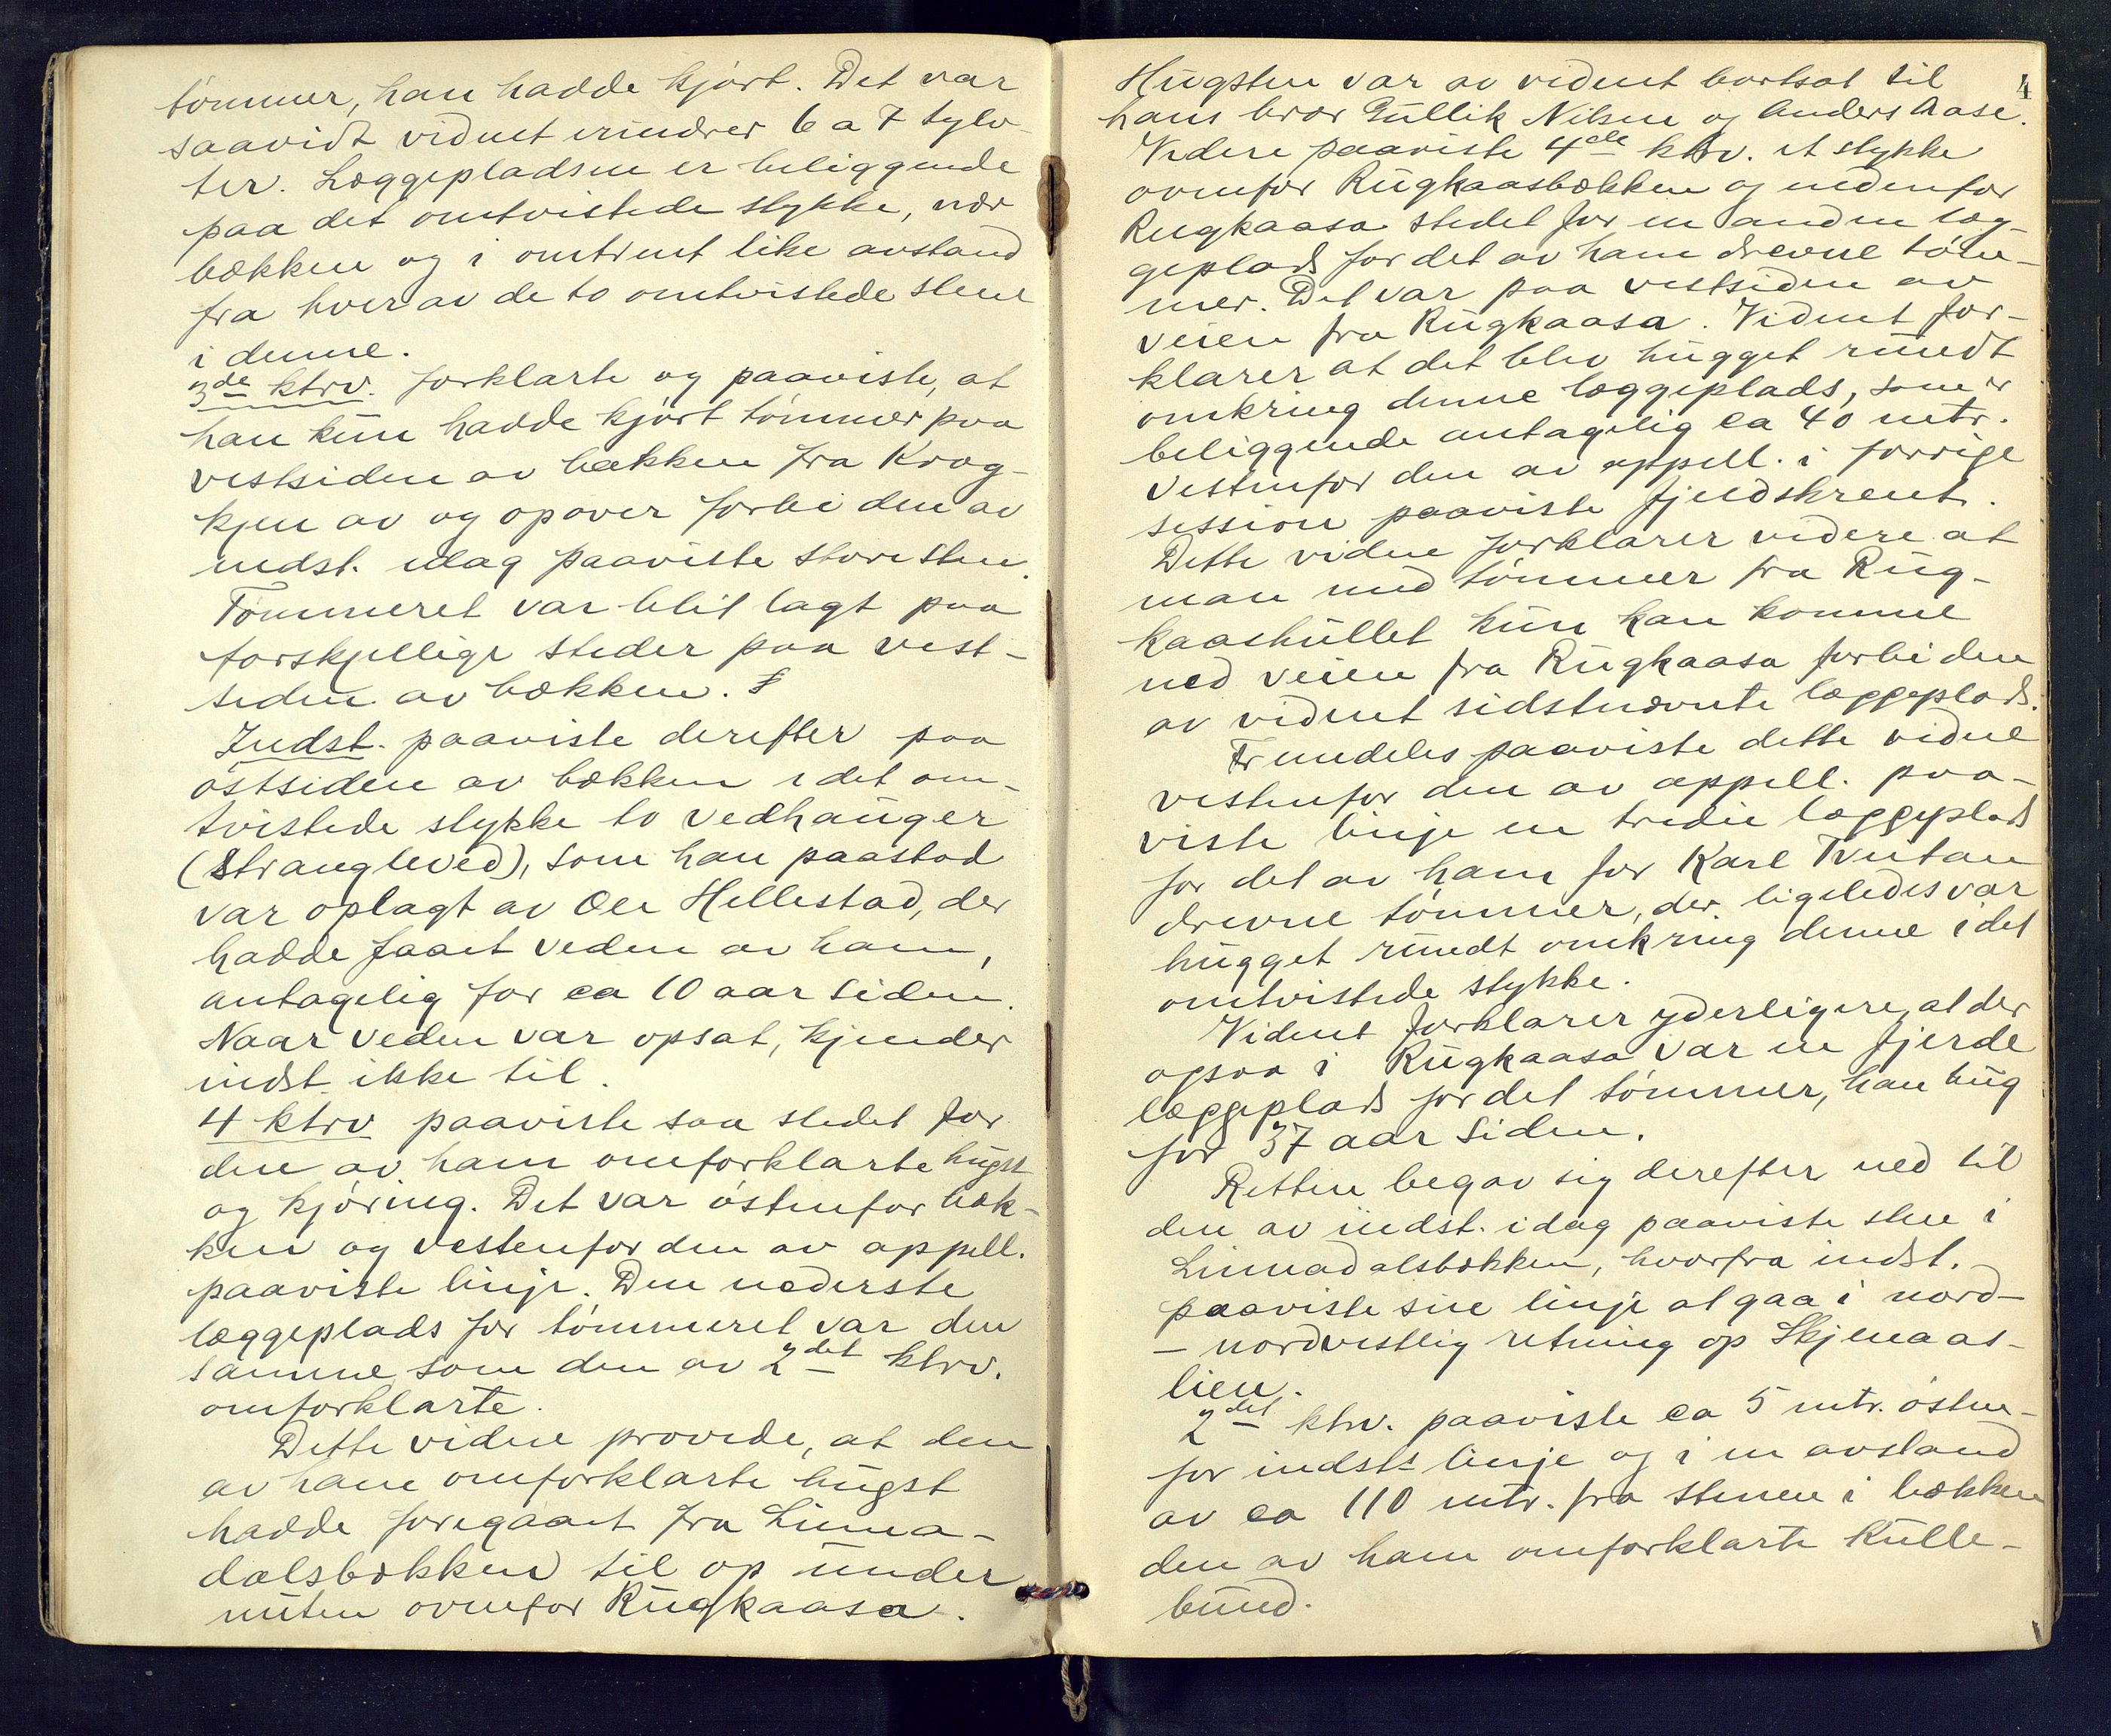 tömmer, han hadde kjört. Det var
saavidt vidnet erindrer 6 a 7 tylv-
ter. Læggepladsen er beliggende
paa det omtvistede stykke, nær
bækken og i omtrent like avstand
fra hver av de to omtvistede stene
i denne.
3de ktrv. forklarte og paaviste, at
han kun hadde kjört tömmer paa
vestsiden av bækken fra Krog-
kjen av og opover forbi den av
indst. idag paaviste store sten.
Tömmeret var blit lagt paa
forskjellige steder paa vest-
siden av bækken.
Indst. paaviste derefter paa
östsiden av bækken i det om-
tvistede stykke to vedhauger
(strangleved), som han paastod
var oplagt av Ole Hellestad, der
hadde faaet veden av ham,
antagelig for ca 10 aar siden.
Naar veden var opsat, kjender
indst. ikke til.
4 ktrv paaviste saa stedet for
den av ham omforklarte hugst
og kjöring. Det var östenfor bæk-
ken og vestenfor den av appell.
paaviste linje. Den nederste
læggeplads for tömmeret var den
samme som den av 2det ktrv.
omforklarte.
Dette vidne provede, at den
av ham omforklarte hugst
hadde foregaaet fra Linna-
dalsbækken til op under
nuten ovenfor Rugkaasa.
4
Hugsten var av vidnet bortsat til
hans bror Gullik Nilsen og Anders Aase.
Videre paaviste 4de ktrv. et stykke
ovenfor Rugkaasbækken og nedenfor
Rugkaasa stedet for en anden læg-
geplads for det av ham drevne töm-
mer. Det var paa vestsiden av
veien fra Rugkaasa. Vidnet for-
klarer at det blev hugget rundt
omkring denne læggeplads, som er
beliggende antagelig ca 40 mtr.
vestenfor den av appell. i forrige
session paaviste fjeldskrent.
Dette vidne forklarer videre at
man med tömmer fra Rug-
kaashullet kun kan komme
ned veien fra Rugkaasa forbi den
av vidnet sidstnævnte læggeplads.
Fremdeles paaviste dette vidne
vestenfor den av appell. paa-
viste linje en tredie læggeplads
for det av ham for Karl Tventan
drevne tömmer, der ligeledes var
hugget rundt omkring denne i det
omtvistede stykke.
Vidnet forklarer yderligere, at der
ogsaa i Rugkaasa var en fjerde
læggeplads for det tömmer, han hug
for 37 aar siden.
Retten begav sig derefter ned til
den av indst. idag paaviste sten i
Linnadalsbækken, hvorfra indst.
paaviste sin linje at gaa i nord-
- nordvestlig retning op Skjenaas-
lien.
2det ktrv. paaviste ca 5 mtr. östen-
for indsts linje og i en avstand
av ca 110 mtr. fra stenen i bækken
den av ham omforklarte kulle-
bund.